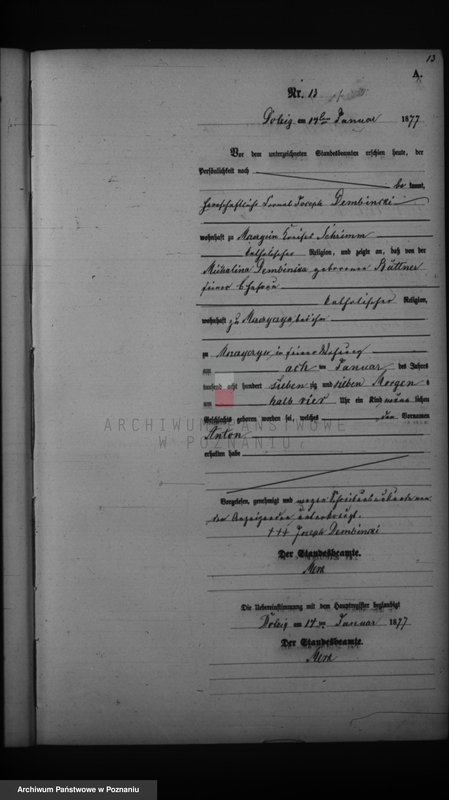 13
A.
Nr. 13
Dolzig am 17ten Januar 1877
Vor dem unterzeichneten Standesbeamten erschien heute, der
Persönlichkeit nach
be kannt,
herrschaftliche Fornal Joseph Dembinski
wohnhaft zu Kreises Schrimm
katholischer Religion, und zeigte an, daß von der
Michalina Dembinska geborenen Büttner
seiner Ehefrau
katholischer Religion,
wohnhaft zu bei ihm
zu in seiner Wohnung
am acht ten Januar des Jahres
tausend acht hundert sieben zig und sieben Morgens
um halb vier Uhr ein Kind männ lichen
Geschlechts geboren worden sei, welches den Vornamen
Anton
erhalten habe
Vorgelesen, genehmigt und wegen
des Anzeigenden unterkreuzt.
+++ Joseph Dembinski
Der Standesbeamte.
Die Uebereinstimmung mit dem Hauptregister beglaubigt
Dolzig am 17ten Januar 1877
Der Standesbeamte.
ARCHIWUM PAŃSTWOWE
W POZNANIU
Archiwum Państwowe w Poznaniu